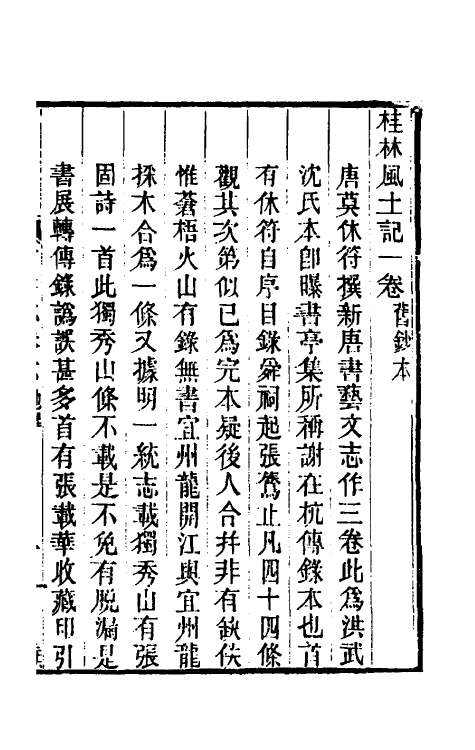 桂林風土記一卷舊鈔本
唐莫休符撰新唐書藝文志作三卷此爲洪武
沈氏本卽曝書亭集所稱謝在杭傳錄本也首
有休符自序目錄舜祠起張鷟止凡四十四條
觀其次第似已爲完本疑後人合幷非有缺佚
惟蒼梧火山有錄無書宜州龍開江與宜州龍
採木合爲一條又據明一統志載獨秀山有張
固詩一首此獨秀山條不載是不免有脫漏是
書展轉傳錄譌誤甚多首有張載華收藏印引